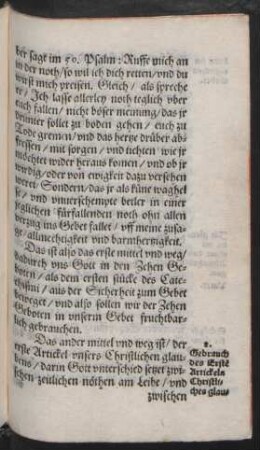 der sagt im 50. Psalm: Ruffe mich an
in der noth/ so wil ich dich retten/ vnd du
wirst mich preisen. Gleich/ als spreche
er/ Ich lasse allerley noth teglich vber
euch fallen/ nicht böser meinung/ das jr
drunter sollet zu boden gehen/ euch zu
Tode gremen/ vnd das hertze drüber ab-
fressen/ mit sorgen/ vnd tichten wie jr
möchtet wider heraus komen/ vnd ob jr
wirdig/ oder von ewigkeit dazu versehen
Sondern/ das jr als küne waghel
se/ vnd vnuerschempte betler in einer
jeglichen fürfallenden noth ohn allen
verzug ins Gebet fallet/ vff meine zusa-
ge/ allmechtigkeit vnd barmhertzigkeit.
Das ist also das erste mittel vnd weg/
dadurch vns Gott in den Zehen Ge-
boten/ als dem ersten stücke des Cate-
chismi/ aus der Sicherheit zum Gebet
beweget/ vnd also sollen wir der Zehen
Geboten in vnserm Gebet fruchtbar-
lich gebrauchen.
Das ander mittel vnd weg ist/ der
erste Artickel vnsers Christlichen glau-
bens/ darin Gott vnterschied setzet zwi-
schen zeitlichen nöthen am Leibe/ vnd
zwischen
2.
Gebrauch
des Erstē
Artickels
Christli-
ches glau